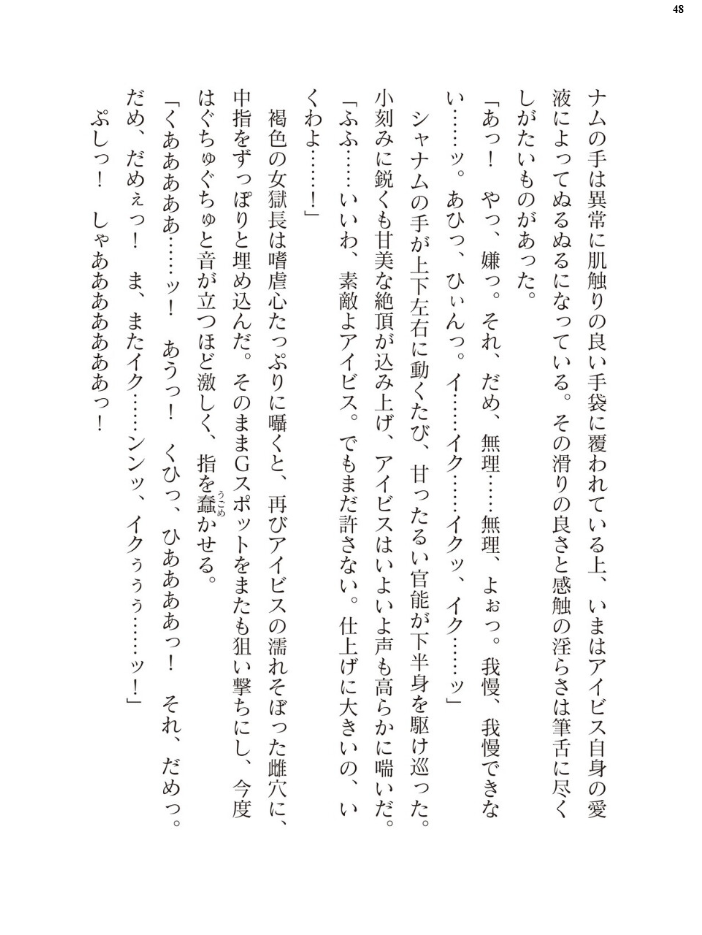 48
ナムの手は異常に肌触りの良い手袋に覆われている上、いまはアイビス自身の愛
液によってぬるぬるになっている。その滑りの良さと感触の淫らさは筆舌に尽く
しがたいものがあった。
「あっ！　やっ、嫌っ。それ、だめ、無理……無理、よぉっ。我慢、我慢できな
い……ッ。あひっ、ひぃんっ。イ……イク……イクッ、イク……ッ」
　シャナムの手が上下左右に動くたび、甘ったるい官能が下半身を駆け巡った。
小刻みに鋭くも甘美な絶頂が込み上げ、アイビスはいよいよ声も高らかに喘いだ。
「ふふ……いいわ、素敵よアイビス。でもまだ許さない。仕上げに大きいの、い
くわよ……！」
　褐色の女獄長は嗜虐心たっぷりに囁くと、再びアイビスの濡れそぼった雌穴に、
中指をずっぽりと埋め込んだ。そのままGスポットをまたも狙い撃ちにし、今度
はぐちゅぐちゅと音が立つほど激しく、指を蠢うごめかせる。
「くああああぁ……ッ！　あうっ！　くひっ、ひああああっ！　それ、だめっ。
だめ、だめぇっ！　ま、またイク……ンンッ、イクぅぅぅ……ッ！」
　ぷしっ！　しゃああああああああっ！